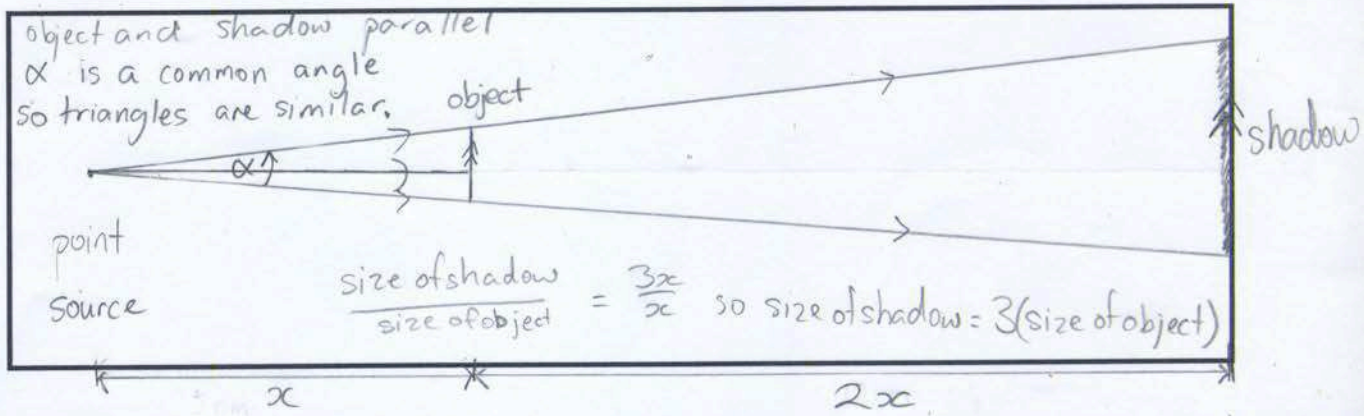 object and shadow parallel
α is a common angle
so triangles are similar.
object
α
shadow
point
source
size of shadow / size of object = 3x / x so size of shadow = 3(size of object)
x
2x